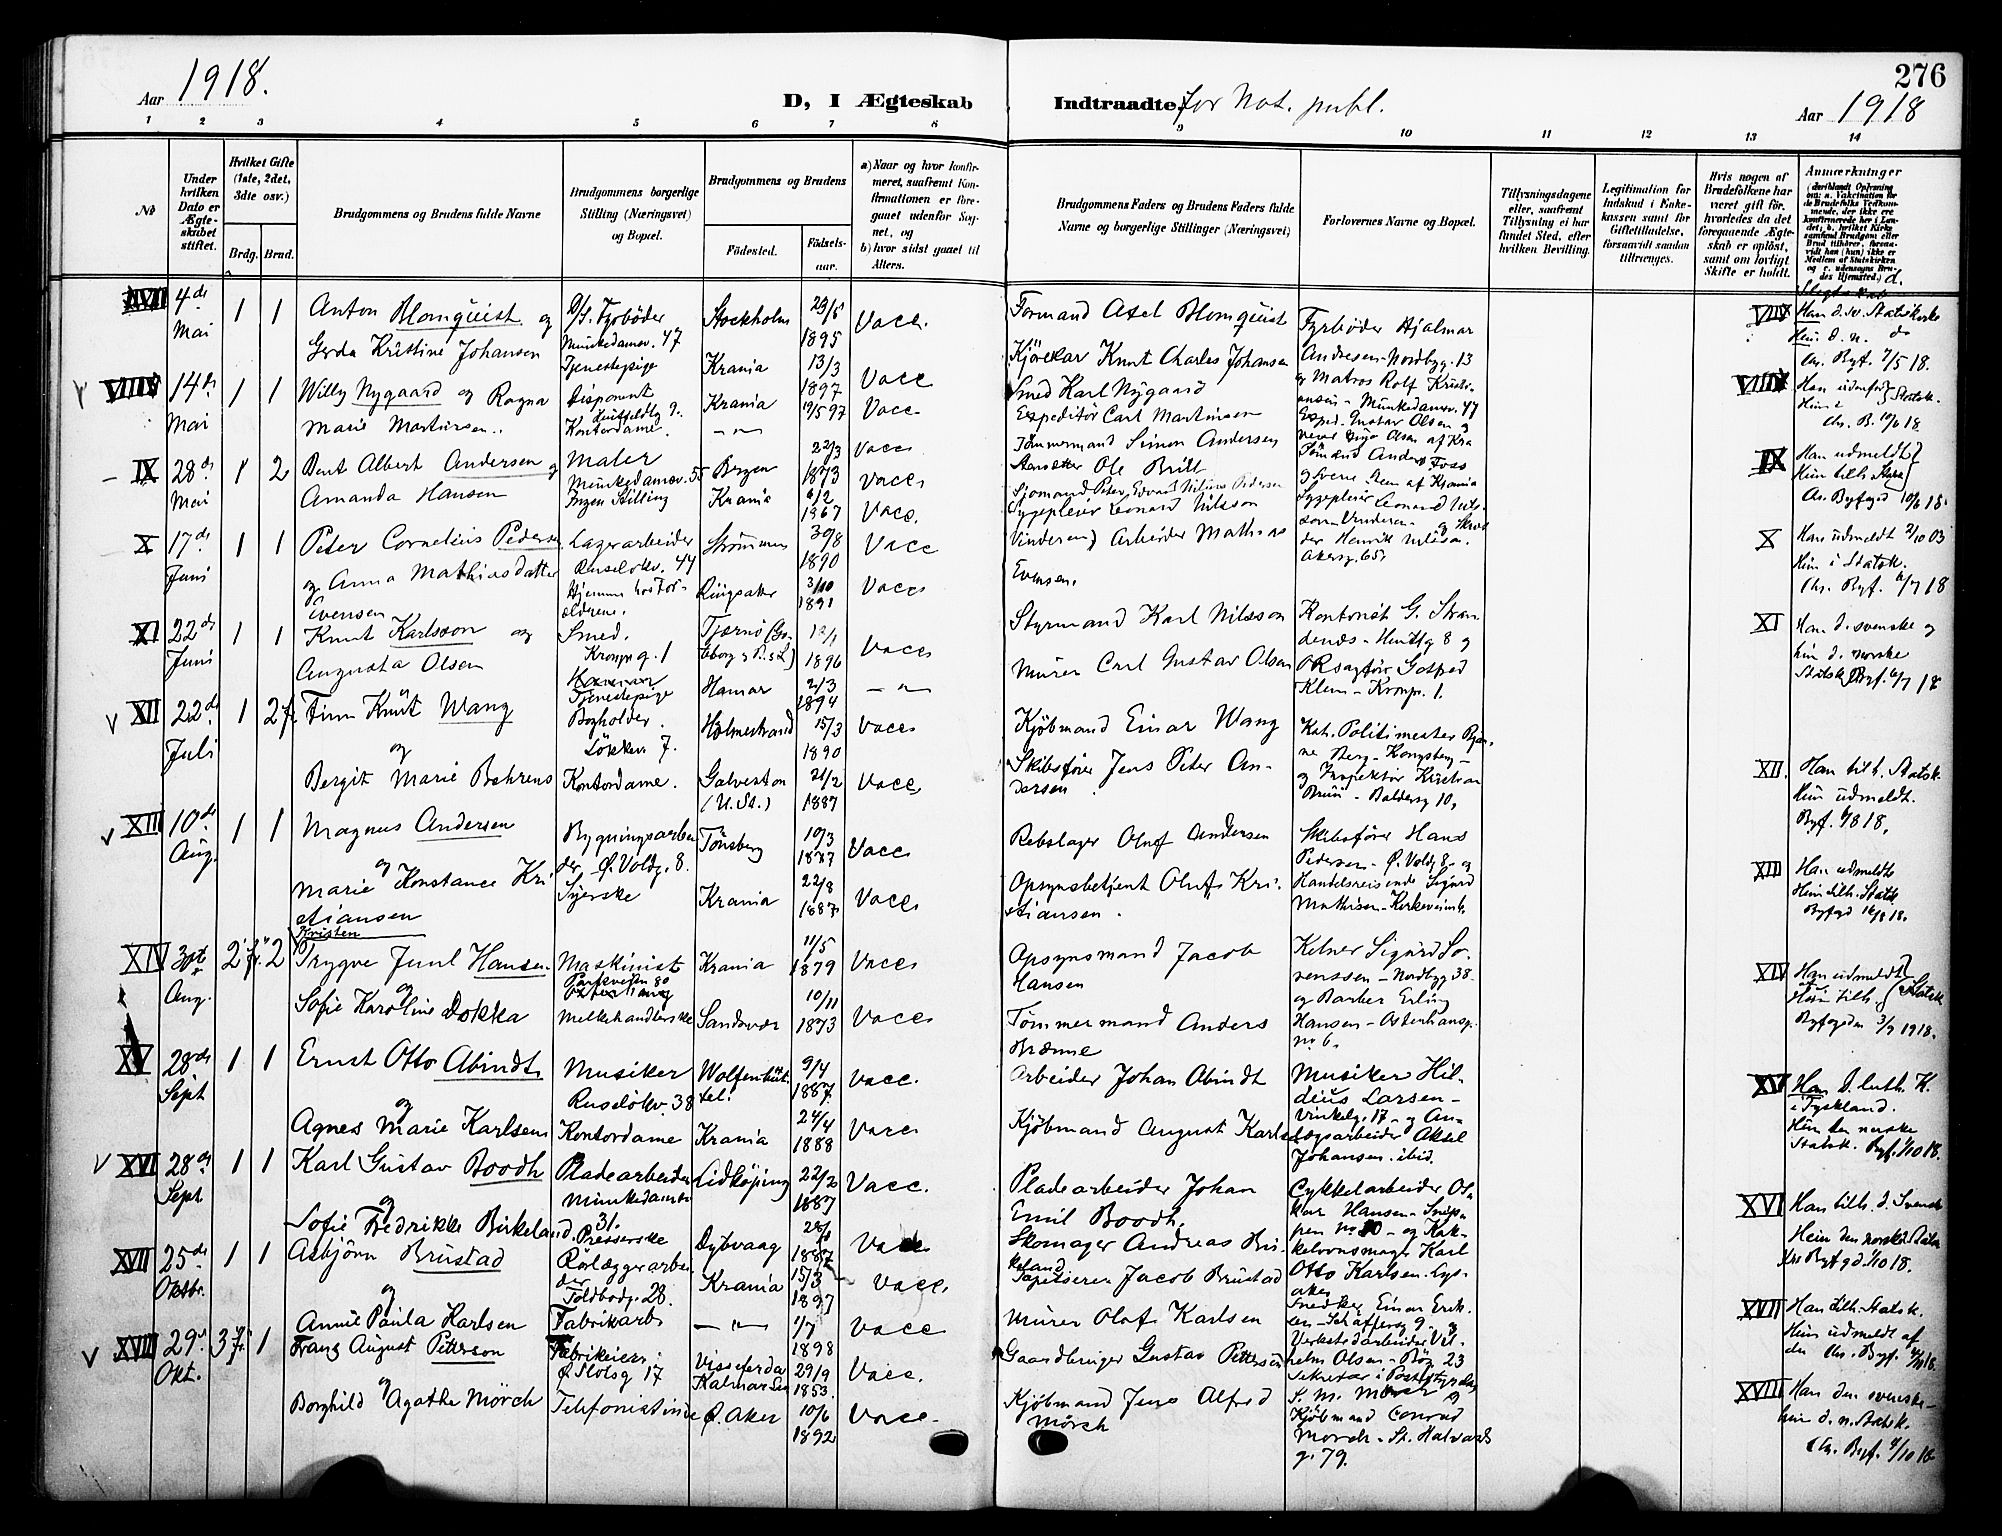 276
Aar 1918.
D, I Ægteskab Indtraadte for Not. publ.
Aar 1918
1 2 3 4 5 6 7 8 9 10 11 12 13 14
No
Under hvilken Dato er Ægteskabet stiftet.
Hvilket Gifte (1ste, 2det, 3dte osv.)
Brdg. Brud.
Brudgommens og Brudens fulde Navne
Brudgommens borgerlige Stilling (Næringsvei) og Bopæl.
Brudgommens og Brudens
Födested.
Födsels-aar.
a) Naar og hvor konfirmeret, saafremt Konfirmationen er foregaaet udenfor Sognet, og
b) hvor sidst gaaet til Alters.
Brudgommens Faders og Brudens Faders fulde Navne og borgerlige Stillinger (Næringsvei)
Forlovernes Navne og Bopæl.
Tillysningsdagene eller, saafremt Tillysning ei har fundet Sted, efter hvilken Bevilling.
Legitimation for Indskud i Enkekassen samt for Giftetilladelse, forsaavidt saadan tiltrænges.
Hvis nogen af Brudefolkene har været gift för, hvorledes da det foregaaende Ægteskab er oplöst, samt om lovligt Skifte er holdt.
Anmærkninger
4de Mai 1 1 Anton Blomquist og
Gerda Kristine Johansen
D/S. Fyrbøder
Munkedamsv. 47
Tjenestepige
Stockholm 1895 Vacc.
Krania 13/3 1897 Vacc
Formand Axel Blomquist
Kjørekar Knut Charles Johansen
Fyrbøder Hjalmar
Andresen - Nordbyg. 13
og Matros Rolf Kristiansen - Munkedamsv. 47
VIII Han d. sv. Statskirke
Hun d. n. do
Chr. Byf. 7/5 18.
VIIII 14de Mai 1 1 Willy Nygaard og Ragna
Marie Martinsen.
Disponent
Kontordame.
Krania 19/5 97 Vacc
Smed Karl Nygaard
Expeditör Carl Martinsen
Exped. Gustav Olsen og
IX 28de Mai 1 2 Bent Albert Andersen og
Amanda Hansen
Maler
Munkedamsv. 55
Ingen Stilling
Bergen 22/3 1873 Vacc
Krania 1867 Vacc.
Tömmermand Simon Andersen
IX Han udmeldt
Hun tilh. Statsk
Chr. Byfogd 10/6 18.
X 17de Juni 1 1 Peter Cornelius Pedersen
og Anna Mathiasdatter
Evensen
Lagerarbeider
Ruselökv. 44
Hjemme hos Forældrene.
Strømmen 30/8 1890 Vacc
Ringsaker 3/10 1891 Vacc
Sjømand Peter Edvard Nilsen Pedersen
Sygepleier Leonard Nilsson
Vinderen) Arbeider Mathias
Evensen.
Sygepleier Leonard Nilsson - Vinderen - og Skrædder Henrik Nilsson.
Akersg. 65.
X Han udmeldt 2/10 03
Hun i Statsk.
Chr. Byf. 6/7 18
XI 22de Juni 1 1 Knut Karlsson og
Augusta Olsen
Smed.
Kronpr. g. 1
Tjenestepige
Tjærnö 12/1 1896 Vacc
Hamar 2/3 1894 — " —
Styrmand Karl Nilsson
Murer Carl Gustav Olsen
Kontorist G. Strandenæs - Huitfg 8 og
ORsagfør Gotfred
Klem - Kronpr. 1.
XI Han d. svenske og
hun d. norske
Statsk. Byf. 6/7 18
XII 22de Juli 1 2 f. Finn Knut Wang
og
Bergit Marie Behrens
Bogholder.
Løkken 7.
Kontordame.
Holmestrand 15/3 1890 Vacc
Galveston (U. St.) 21/2 1887 Vacc
Kjøbmand Einar Wang
Skibsfører Jens Peter Andersen
Kst. Politimester Bjarne Berg - Kongsberg -
og Inspektør Kristian
Bruun - Baldersg 10,
XII. Han tilh. Statsk.
Hun udmeldt.
Byf. 1/8 18,
XIII 10de Aug. 1 1 Magnus Andersen
og
Marie Konstance Kristiansen
Bygningsarbeider, Ø. Voldg. 8.
Syerske
Tönsberg 10/3 1887 Vacc
Krania 22/8 1887 Vacc
Rebslager Oluf Andersen
Opsynsbetjent Oluf Kristiansen.
Skibsfører Hans
Pedersen - Ø. Voldg 8 - og
Handelsreisende Sigurd
Mathisen - Kirkeveien
XIII Han udmeldt
Hun tilh. Statsk
Byfogd 16/8 18.
XIV Aug. 2 2 Kristen
Trygve Juul Hansen
og
Sofie Karoline Dokka
Maskinist
Parkveien 80
Melkehandlerske
Krania 11/5 1879 Vacc
Sandsvær 10/11 1873 Vacc
Opsynsmand Jacob
Hansen
Tömmermand Anders
Brænne
Kelner Sigurd Sorenssen - Nordbyg 38.
og Barber Erling
Hansen - Osterhausg.
no 6.
XIV Han udmeldt
Hun tilh. Statsk
Byfogden 3/9 1918.
XV 28de Sept 1 1 Ernst Otto Abindt
og
Agnes Marie Karlsen
Musiker
Ruselökv. 38
Kontordame
Wolfenbüttel. 9/4 1887. Vacc.
Krania 24/4 1888 Vacc
Arbeider Johan Abindt
Kjöbmand August Karlsen
Musiker Hildius Larsen -
Vinkelg. 17 - og Anlægsarbeider Aksel
Johansen. ibid.
XV Han d. luth. K.
i Tyskland.
Hun den norske
Statsk. Byf. 1/10 18.
XVI 28de Sept 1 1 Karl Gustav Boodh
og
Sofie Fredrikke Birkeland
Pladearbeider
Munkedamsv
31.
Presserske
Lidköping 22/2 1887 Vacc.
Dybvaag 1887 Vacc
Pladearbeider Johan
Emil Boodh.
Skomager Andreas Birkeland
Cykkelarbeider Oskar Hansen - og Kakkelovnsmager Karl
Otto Karlsen. Lysaker
XVI Han tilh. d. Svensk
Hun den norske Stats
Chr Byfgd 1/10 18.
XVII 25de Oktbr. 1 1 Asbjörn Brustad
og
Annie Paula Karlsen
Rörlæggerarbeider
Toldbodg. 28.
Fabrikarb
Krania 15/3 1897 Vacc.
— " — 1/7 1898 Vacc
Tapetserer Jacob Brustad
Murer Olaf Karlsen
Snedker Einar Eriksen - Schäffersg 9 - og
Verkstedarbeider Vilhelm Olsen
XVII Han tilh. Statsk.
Hun udmeldt af
den Chr. Byf.
XVIII 29de Okt. 3 1 Frans August Petterson
og
Borghild Agathe Mörch
Fabrikeier.
Ø. Slotsg 17
Telefonistinde
Vissefjerda
Kalmar 29/9 1853. Vacc.
Ø. Aker 10/6 1892 Vacc.
Gaardbruger Gustav Pettersen
Kjøbmand Jens Alfred
Mörch
Sekretær i Poststyrelsen
S. M. Mörch og
Kjöbmand Conrad
Mörch - St. Halvards
g. 79.
XVIII Han den svenske -
hun d. n. Statsk.
Chr. Byf. 4/10 18